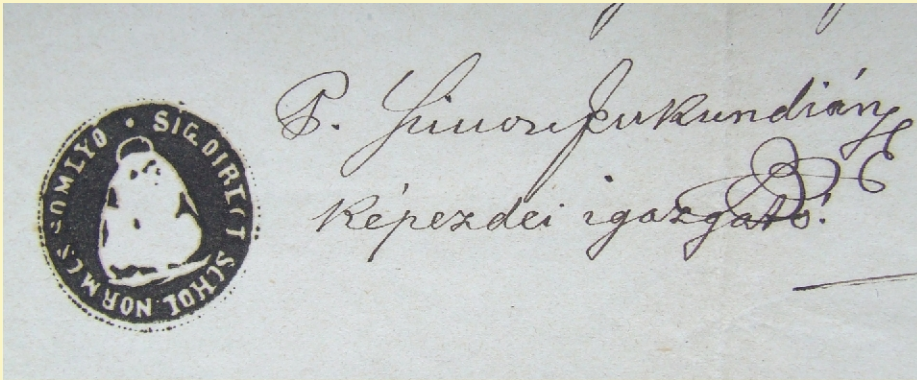 SIG DIRECT SCHOL NORM CS SOMLYO
P. Simon Jukundián
képezdei igazgató.